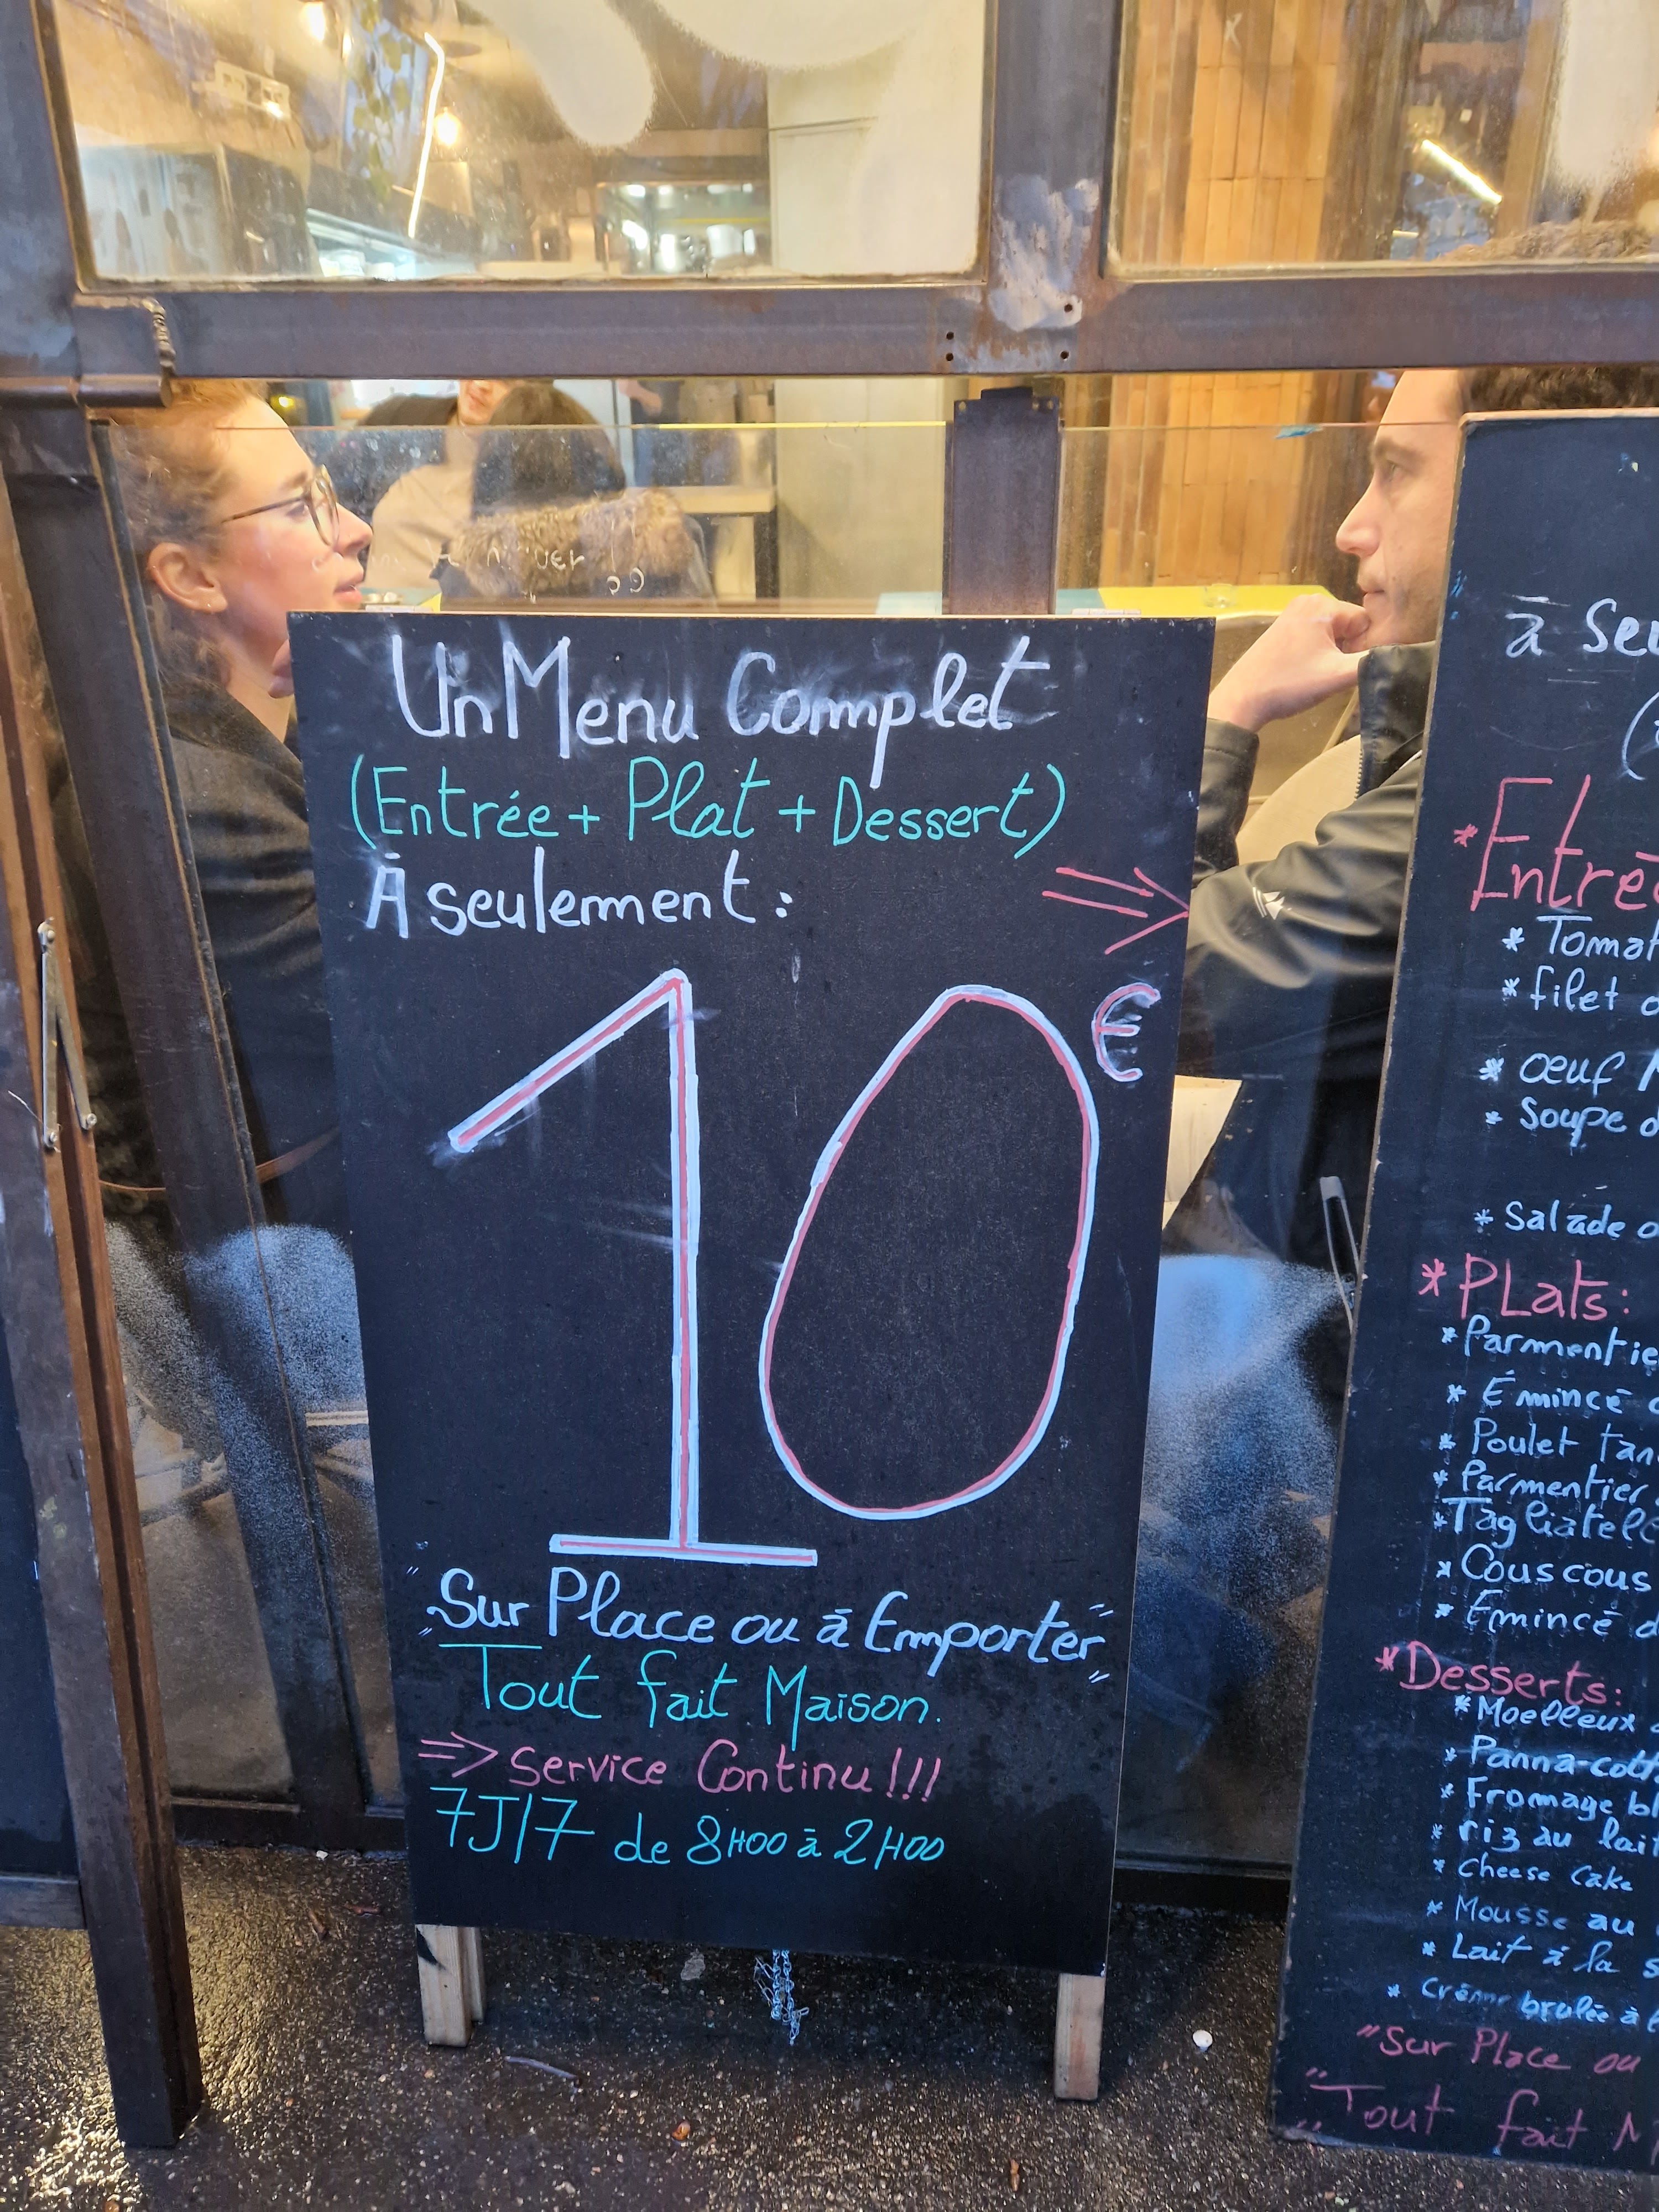 Un Menu Complet
(Entrée + Plat + Dessert)
À seulement :
10 €
"Sur Place ou à Emporter"
Tout fait Maison.
=> Service Continu !!!
7J/7 de 8H00 à 2H00
à
* Entrée
* Tomat
* filet
* oeuf
* Soupe
* Salade
* PLats :
* Parmentie
* Émincé
* Poulet
* Parmentier
* Tagliatel
* Couscous
* Émincé
* Desserts :
* Moelleux
* Panna-cott
* Fromage bl
* riz au lait
* Cheese Cake
* Mousse au
* Lait à la
* Crème brulée à
"Sur Place ou
"Tout fait